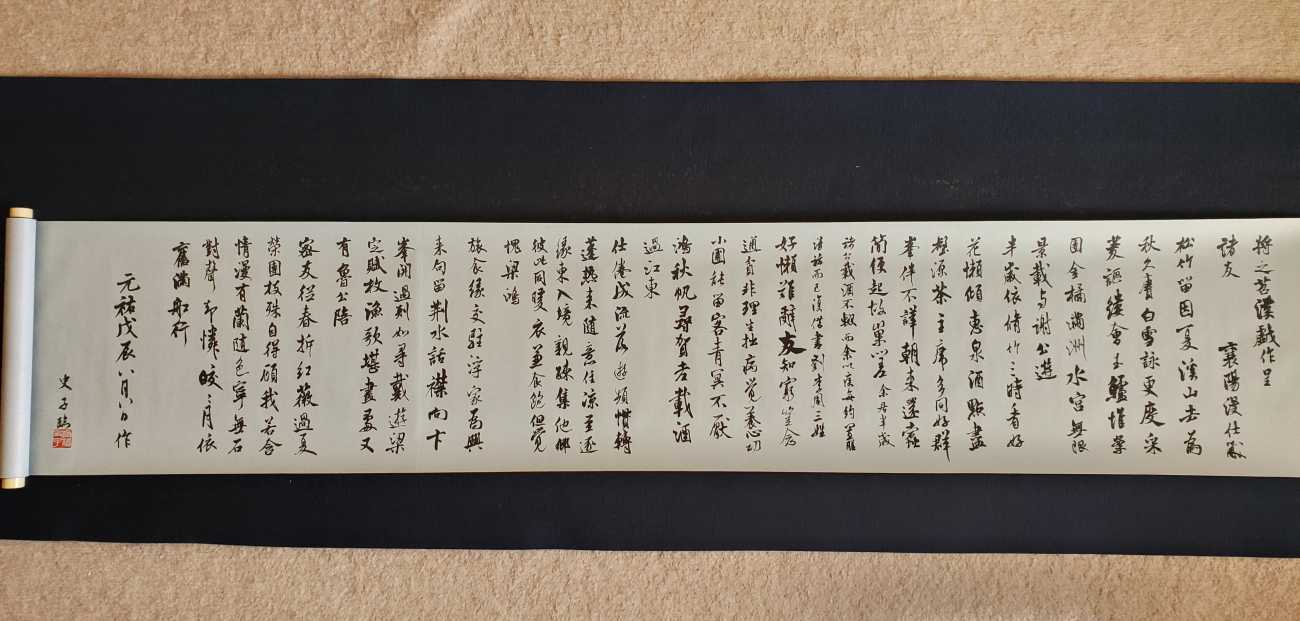 將之苕溪戲作呈
諸友 襄陽漫仕黻
松竹留因夏溪山去為
秋久賡白雪詠更度采
菱謳縷會玉鱸堆案
團金橘滿洲水宮無限
景載与謝公遊
半歲依脩竹三時看好
花懶傾惠泉酒點盡
壑源茶主席多同好群
峯伴不譁朝來還蠹
簡便起故巢嗟 余居半歲
諸公載酒不輟而余以疾每約置膳
清話而已復借書劉李周三姓
好懶難辭友知窮豈念
通貧非理生拙病覺養心功
小圃能留客青冥不厭
鴻秋帆尋賀老載酒
過江東
仕倦成流落遊頻慣轉
蓬熱來隨意住涼至逐
緣東入境親疎集他鄉
彼此同暖衣兼食飽但覺
愧梁鴻
旅食緣交駐浮家為興
來句留荊水話襟向卞
峯開過剡如尋戴遊梁
定賦枚漁歌堪畫處又
有魯公陪
密友從春拆紅薇過夏
榮團枝殊自得顧我若含
情漫有蘭隨色寧無石
對聲却憐皎々月依
舊滿船行
元祐戊辰八月八日作
史子